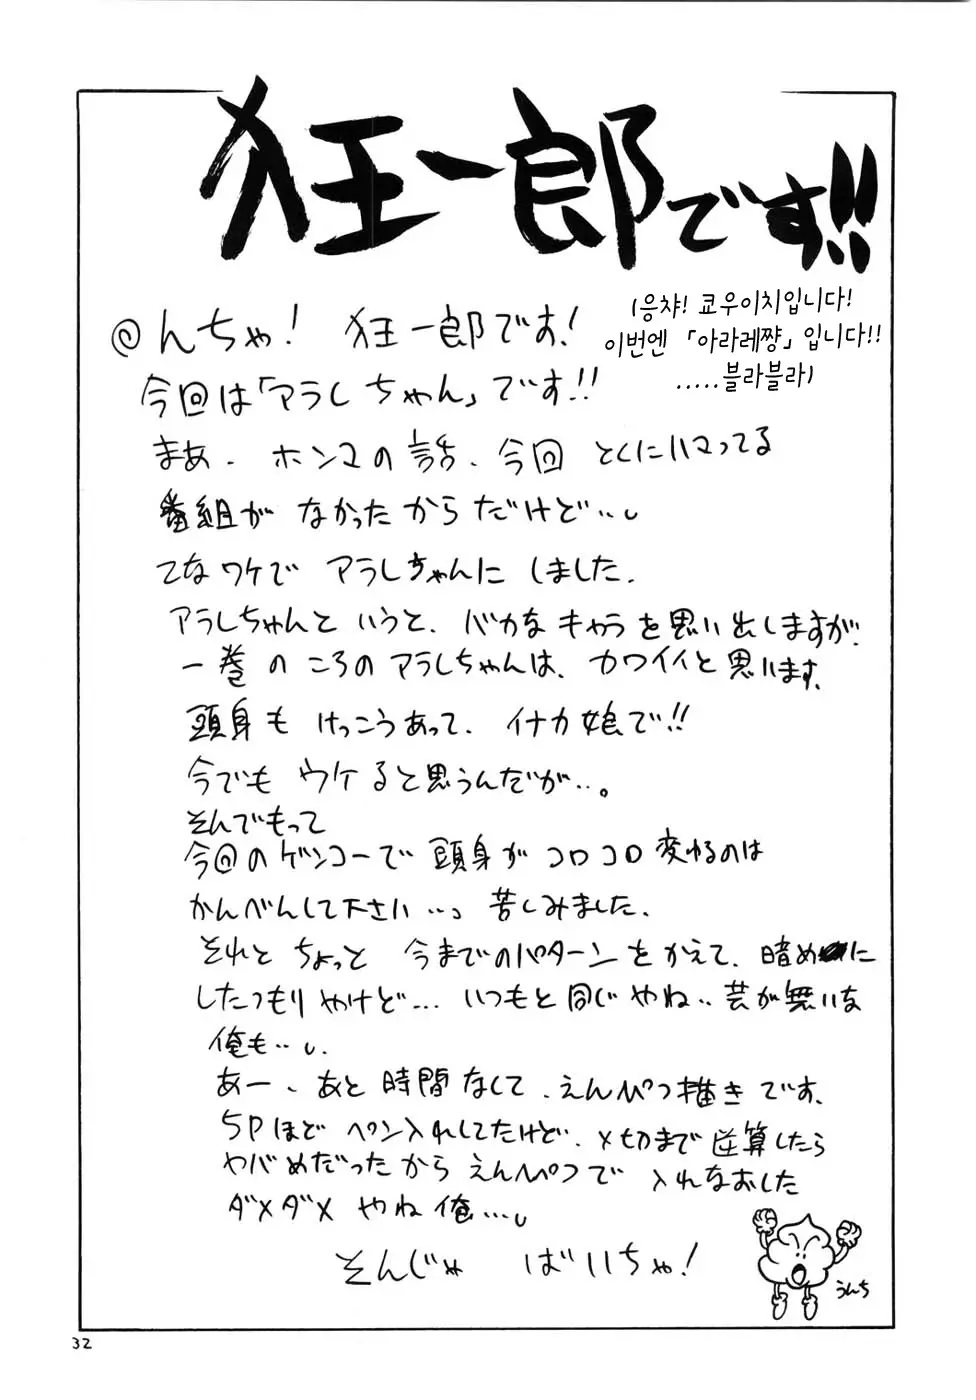 狂一郎です!!
(응챠! 쿄우이치입니다!
이번엔 「아라레쨩」 입니다!!
.....블라블라)
@んちゃ! 狂一郎です!
今回は「アラレちゃん」です!!
まあ、ホンマの話、今回 とくにハマってる
番組が なかったからだけど…。
てなワケで アラレちゃんに しました.
アラレちゃんと いうと、バカな キャラを思い出しますが、
一巻 の ころの アラレちゃんは、カワイイと思います。
頭身も けっこうあって、イナカ娘で!!
今でも ウケると思うんだが…。
そんでもって
今回のゲンコーで 頭身が コロコロ 変わるのは
かんべんして下さい…。苦しみました.
それと ちょっと 今までのパターンを かえて、暗めに
したつもりやけど… いつもと同じやね…芸が無いな
俺も…。
あー、あと 時間なくて、えんぴつ描きです.
5Pほど ペン入れしてたけど、〆切まで逆算したら
ヤバめだったから えんぴつで 入れなおした
ダメダメ やね俺…。
そんじゃ ばいちゃ!
うんち
32